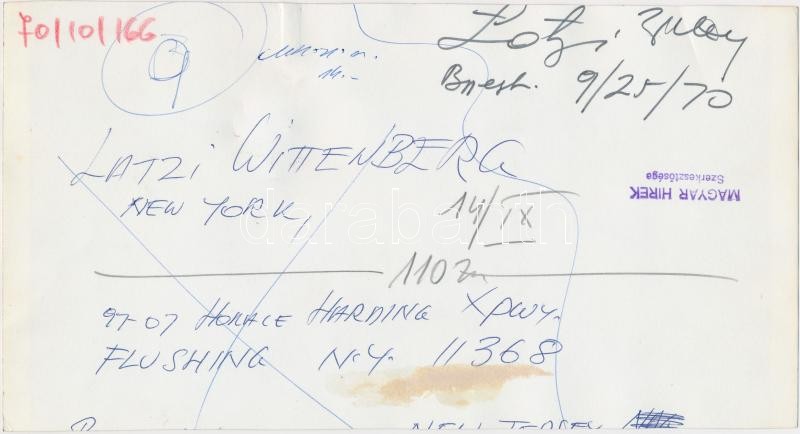 70/10/166
9
Bpest. 9/25/70
LATZI WITTENBERG
NEW YORK,
14/IX
MAGYAR HIREK
Szerkesztősége
darabanth
110
97-07 HORACE HARDING XPWY.
FLUSHING N.Y. 11368
NEW JERSEY